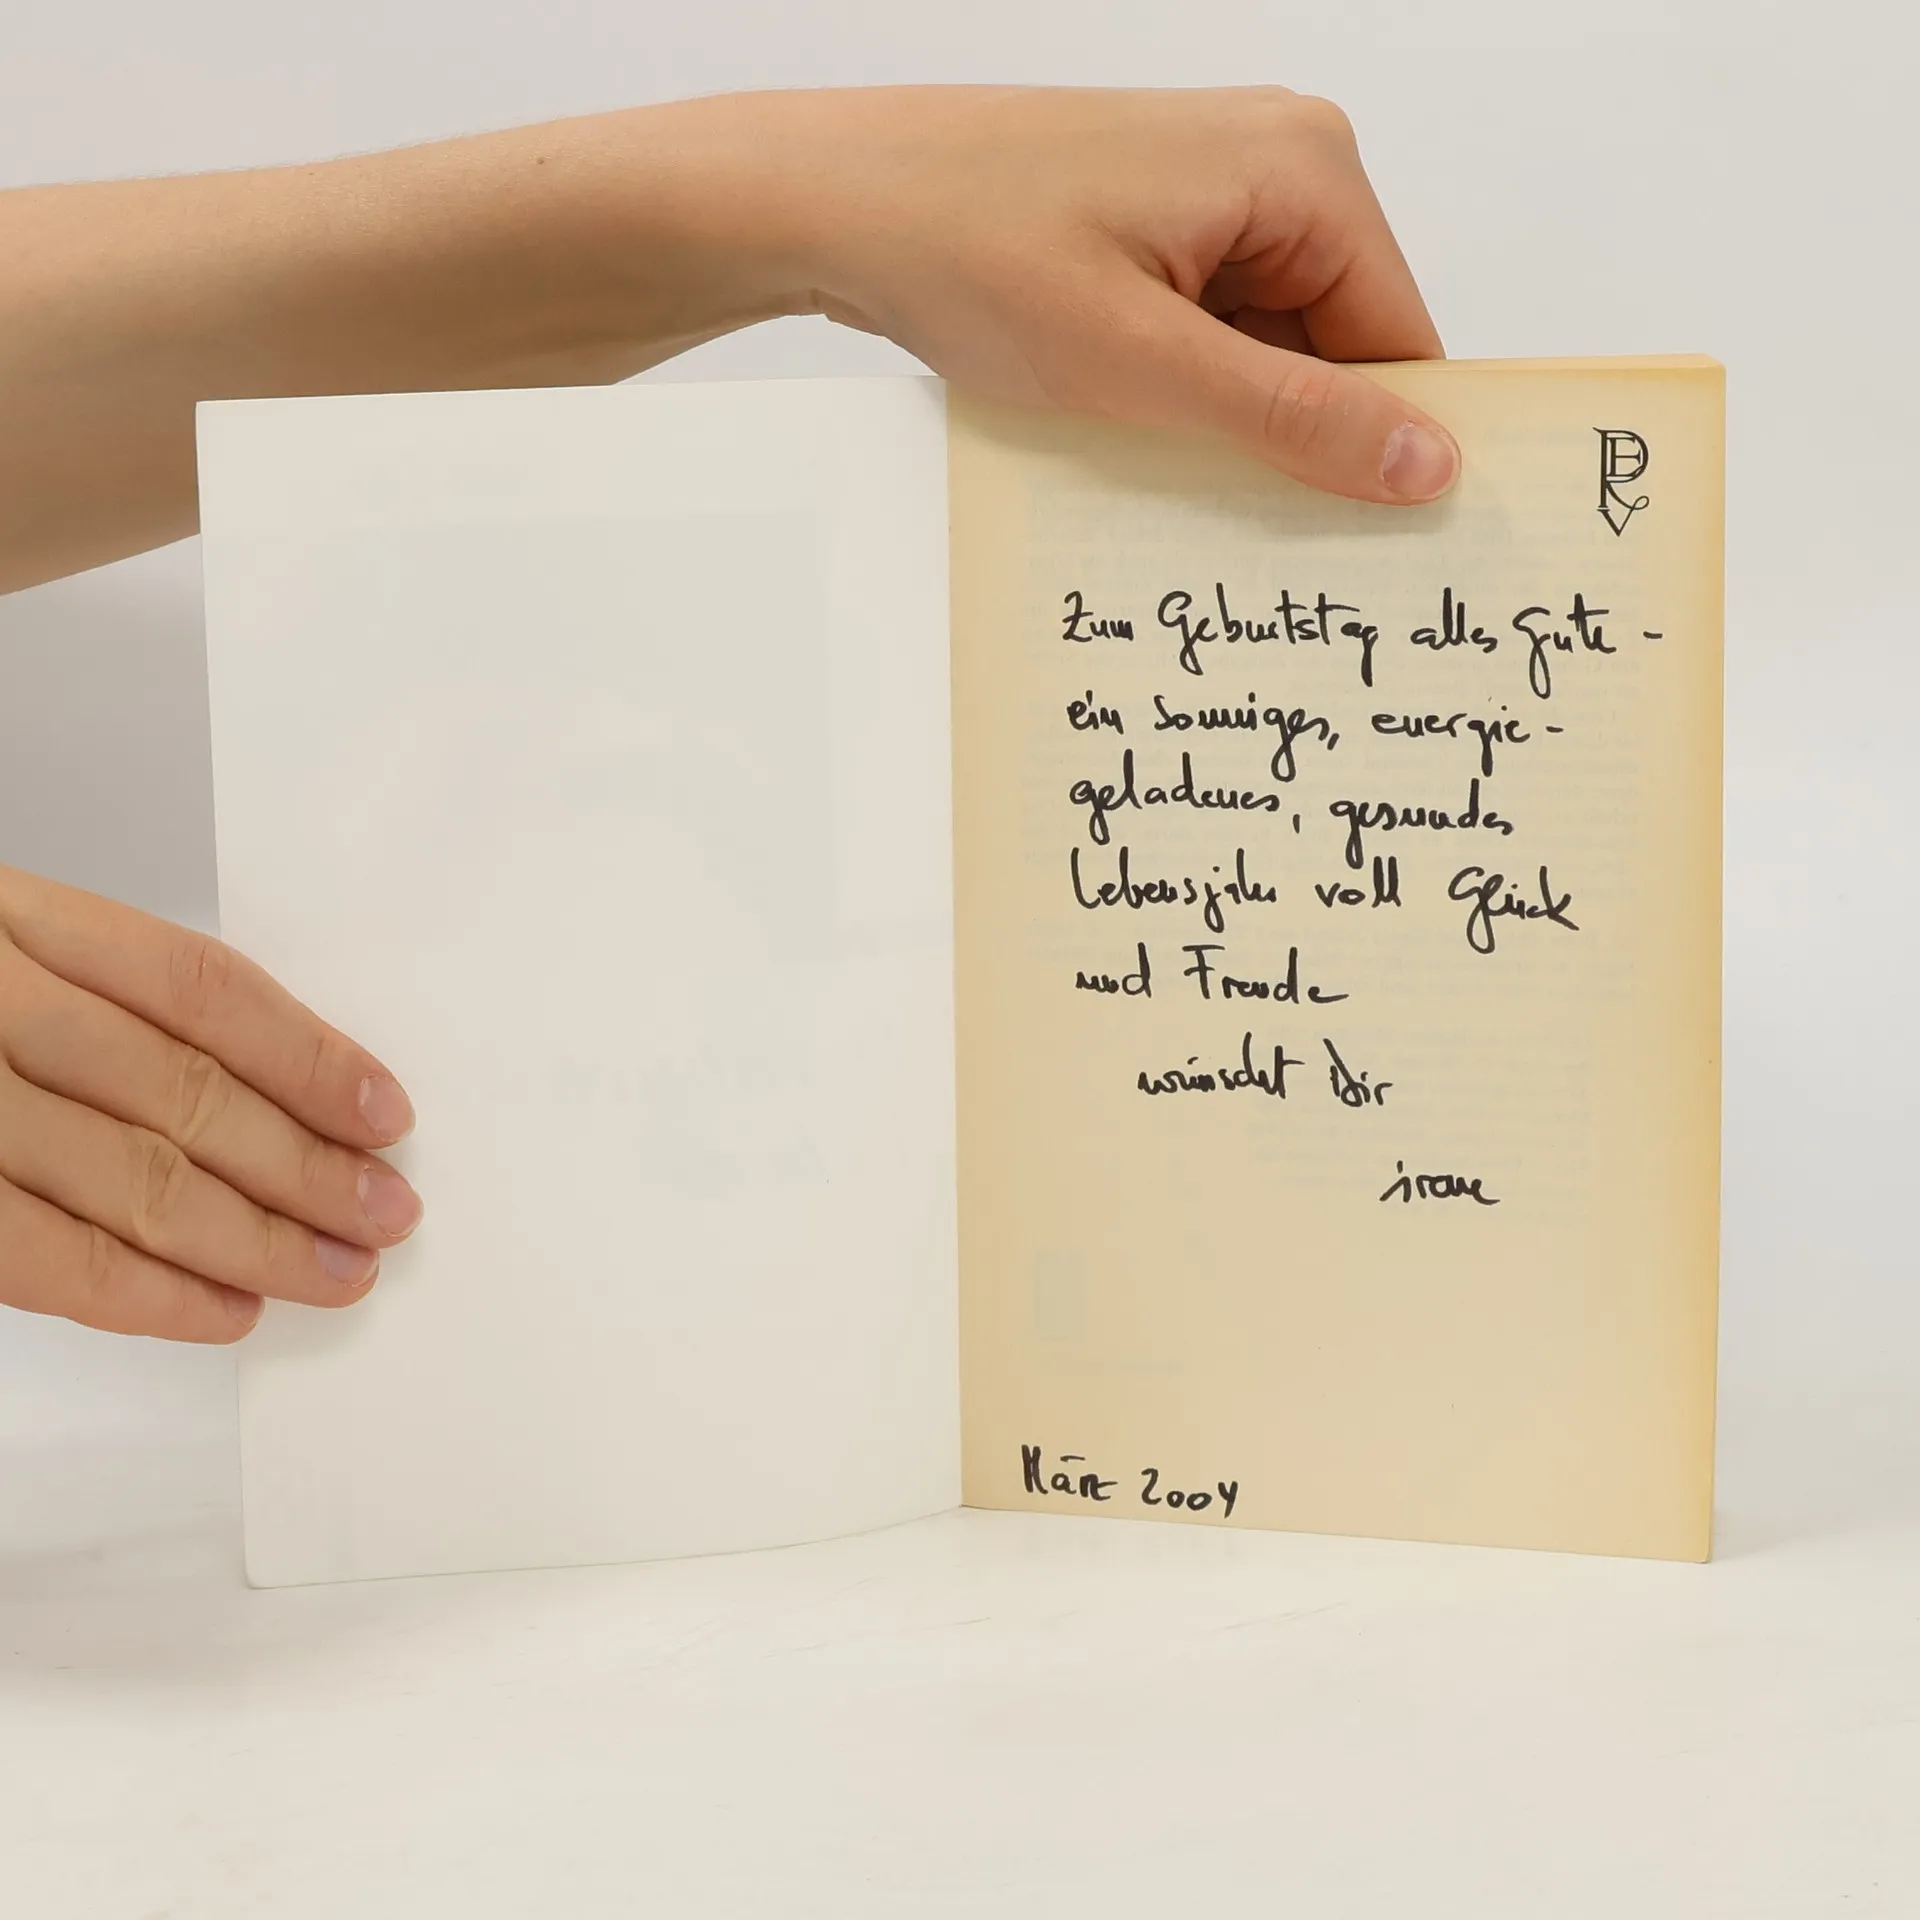 Zum Geburtstag alles Gute -
ein sonniges, energie-
geladenes, gesundes
Lebensjahr voll Glück
und Freude
wünscht Dir
irene
März 2004